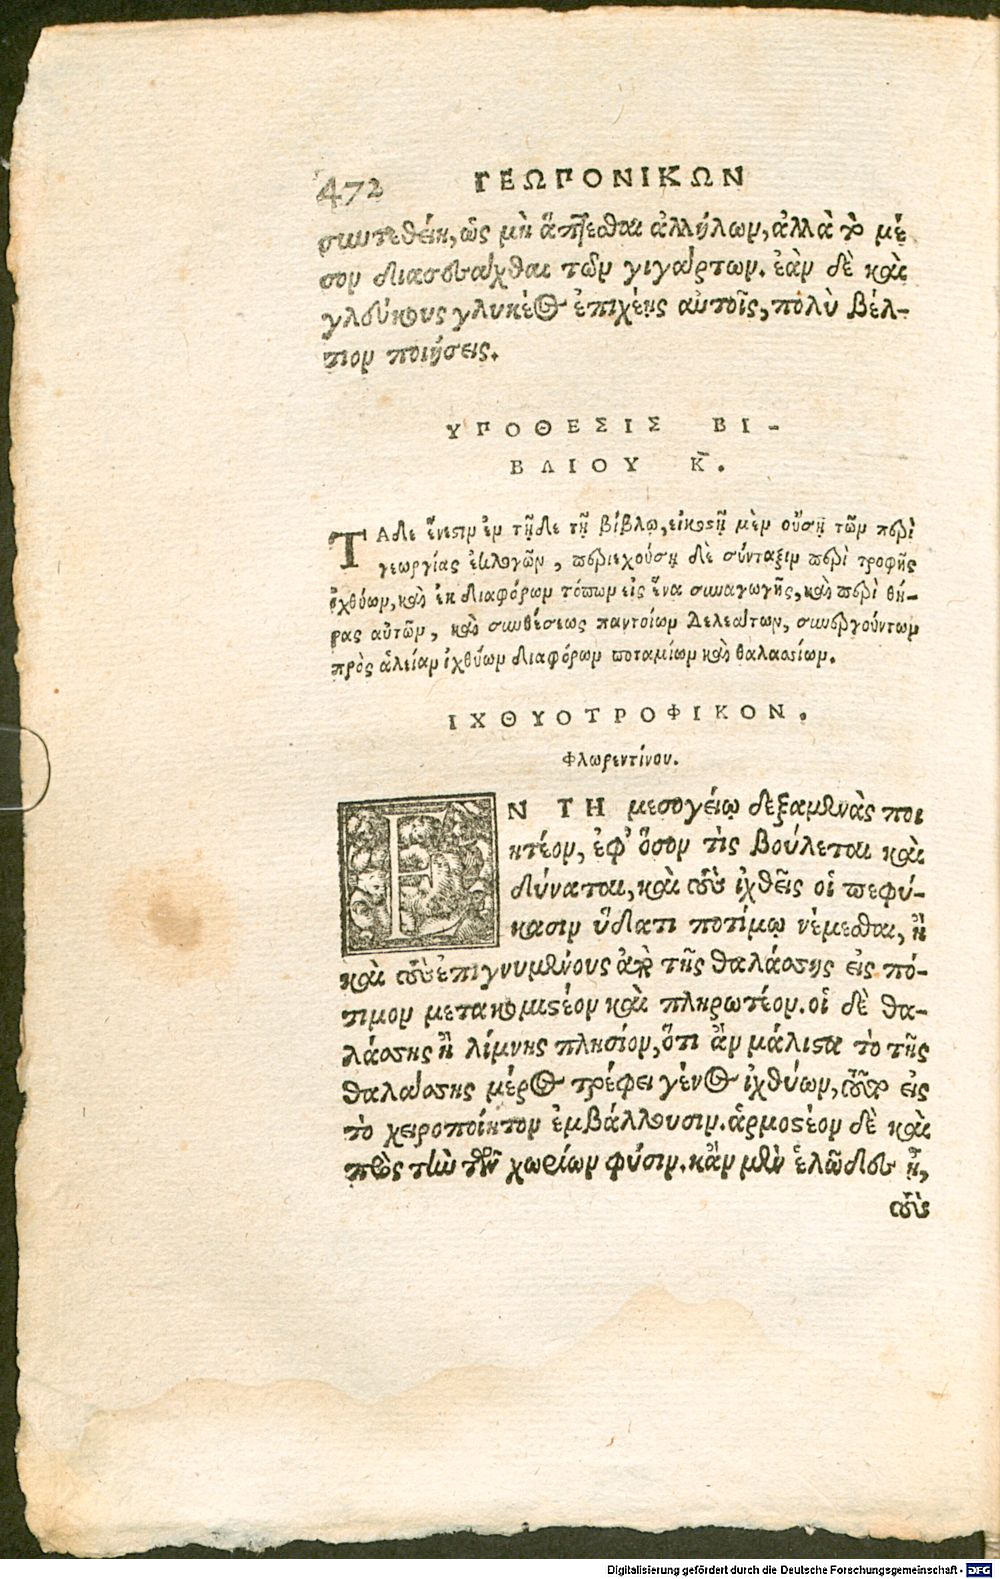 472 ΓΕΩΠΟΝΙΚΩΝ
συντεθείη, ὡς μὴ ἅπτεσθαι ἀλλήλων, ἀλλὰ τὸ μέ
σον διασεσάχθαι τῶν γιγάρτων. ἐὰν δὲ καὶ
γλεύκους γλυκέος ἐπιχέῃς αὐτοῖς, πολὺ βέλ-
τιον ποιήσεις.
ΥΠΟΘΕΣΙΣ ΒΙ-
ΒΛΙΟΥ Κ̄.
ΤΑδε ἔνεστιν ἐν τῇδε τῇ βίβλῳ, εἰκοστῇ μὲν οὔσῃ τῶν περὶ
γεωργίας ἐκλογῶν, περιεχούσῃ δὲ σύνταξιν περὶ τροφῆς
ἰχθύων, καὶ ἐκ διαφόρων τόπων εἰς ἕνα συναγωγῆς, καὶ περὶ θή-
ρας αὐτῶν, καὶ συνθέσεως παντοίων δελεάτων, συνεργούντων
πρὸς ἁλείαν ἰχθύων διαφόρων ποταμίων καὶ θαλασσίων.
ΙΧΘΥΟΤΡΟΦΙΚΟΝ.
Φλωρεντίνου.
ΕΝ ΤΗ μεσογείῳ δεξαμενὰς ποι
ητέον, ἐφ' ὅσον τὶς βούλεται καὶ
δύναται, καὶ τοὺς ἰχθεῖς οἳ πεφύ-
κασιν ὕδατι ποτίμῳ νέμεσθαι, ἢ
καὶ τοὺς ἐπιγνυμένους ἀπὸ τῆς θαλάσσης εἰς πό-
τιμον μετακομιστέον καὶ πληρωτέον. οἱ δὲ θα-
λάσσης ἢ λίμνης πλησίον, ὅτι ἂν μάλιστα τὸ τῆς
θαλάσσης μέρος τρέφει γένος ἰχθύων, τοῦτο εἰς
τὸ χειροποίητον ἐμβάλλουσιν. ἁρμοστέον δὲ καὶ
πρὸς τὴν τῶν χωρίων φύσιν. κἂν μὲν ἑλῶδες ᾖ,
τοὺς
Digitalisierung gefördert durch die Deutsche Forschungsgemeinschaft - DFG